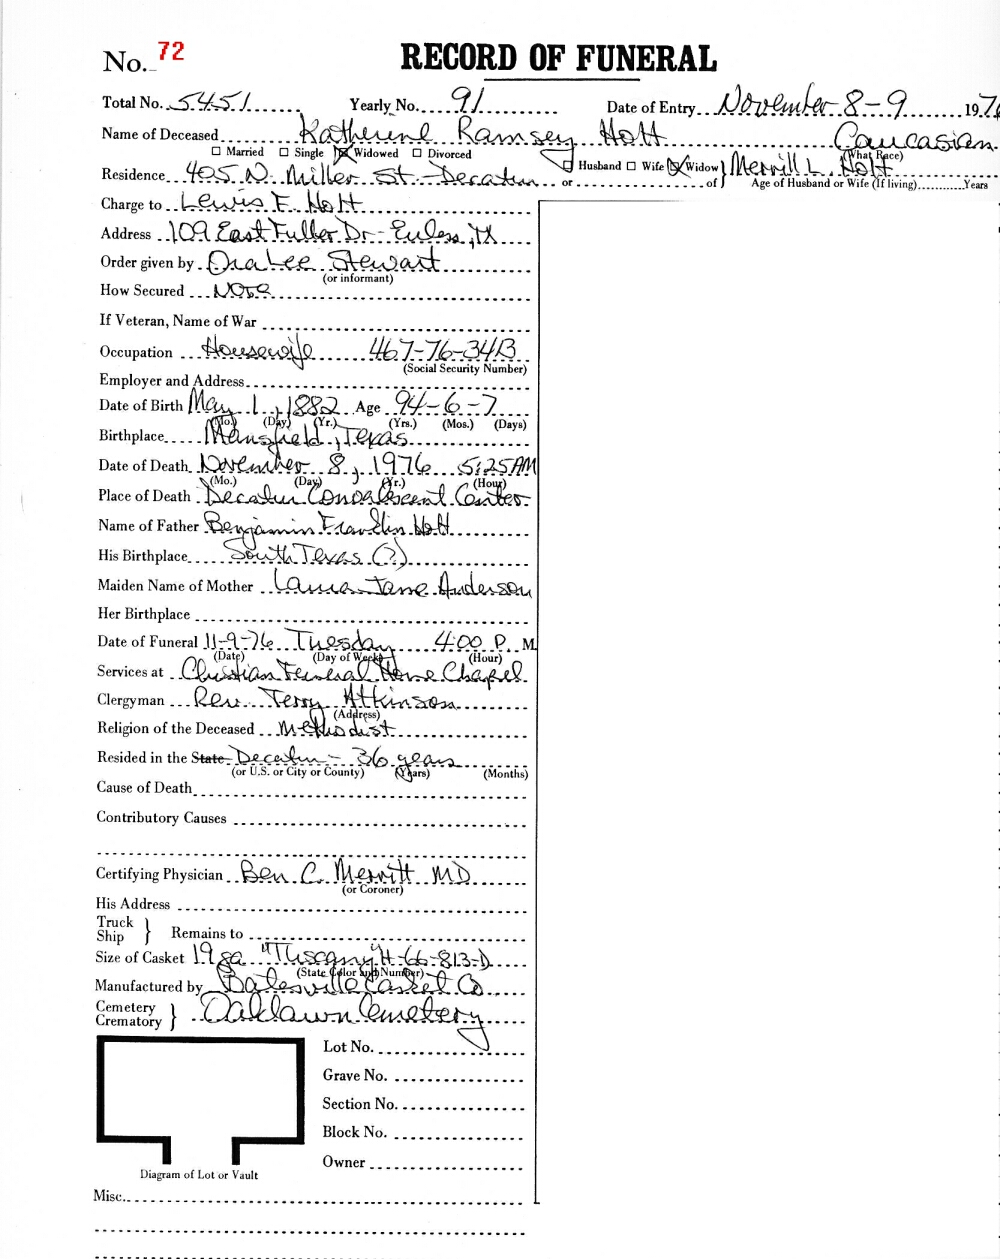 No. 72 RECORD OF FUNERAL
Total No. 5451 Yearly No. 91 Date of Entry November 8-9 1976
Name of Deceased Katherine Ramsey Hott Caucasian
☐ Married ☐ Single ☒ Widowed ☐ Divorced ☐ Husband ☐ Wife ☒ Widow of Merrill L. Hott (What Race)
Residence 405 N. Miller St. Decatur or of Age of Husband or Wife (If living) Years
Charge to Lewis F. Hott
Address 109 East Fuller Dr- Euless, TX
Order given by Ora Lee Stewart
(or informant)
How Secured Note
If Veteran, Name of War
Occupation Housewife 467-76-3413
(Social Security Number)
Employer and Address
Date of Birth May 1, 1882 Age 94-6-7
(Mo.) (Day) (Yr.) (Yrs.) (Mos.) (Days)
Birthplace Mansfield, Texas
Date of Death November 8, 1976 5:25 AM
(Mo.) (Day) (Yr.) (Hour)
Place of Death Decatur Convalescent Center
Name of Father Benjamin Franklin Hott
His Birthplace South Texas (?)
Maiden Name of Mother Laura Jane Anderson
Her Birthplace
Date of Funeral 11-9-76 Tuesday 4:00 P. M.
(Date) (Day of Week) (Hour)
Services at Christian Funeral Home Chapel
Clergyman Rev. Terry Atkinson
(Address)
Religion of the Deceased Methodist
Resided in the State Decatur - 36 years
(or U.S. or City or County) (Years) (Months)
Cause of Death
Contributory Causes
Certifying Physician Ben C. Merritt MD
(or Coroner)
His Address
Truck
Ship } Remains to
Size of Casket 19 ga "Tuscany" H-66-813-D
(State Color and Number)
Manufactured by Batesville Casket Co
Cemetery
Crematory } Oaklawn Cemetery
Lot No.
Grave No.
Section No.
Block No.
Owner
Diagram of Lot or Vault
Misc.